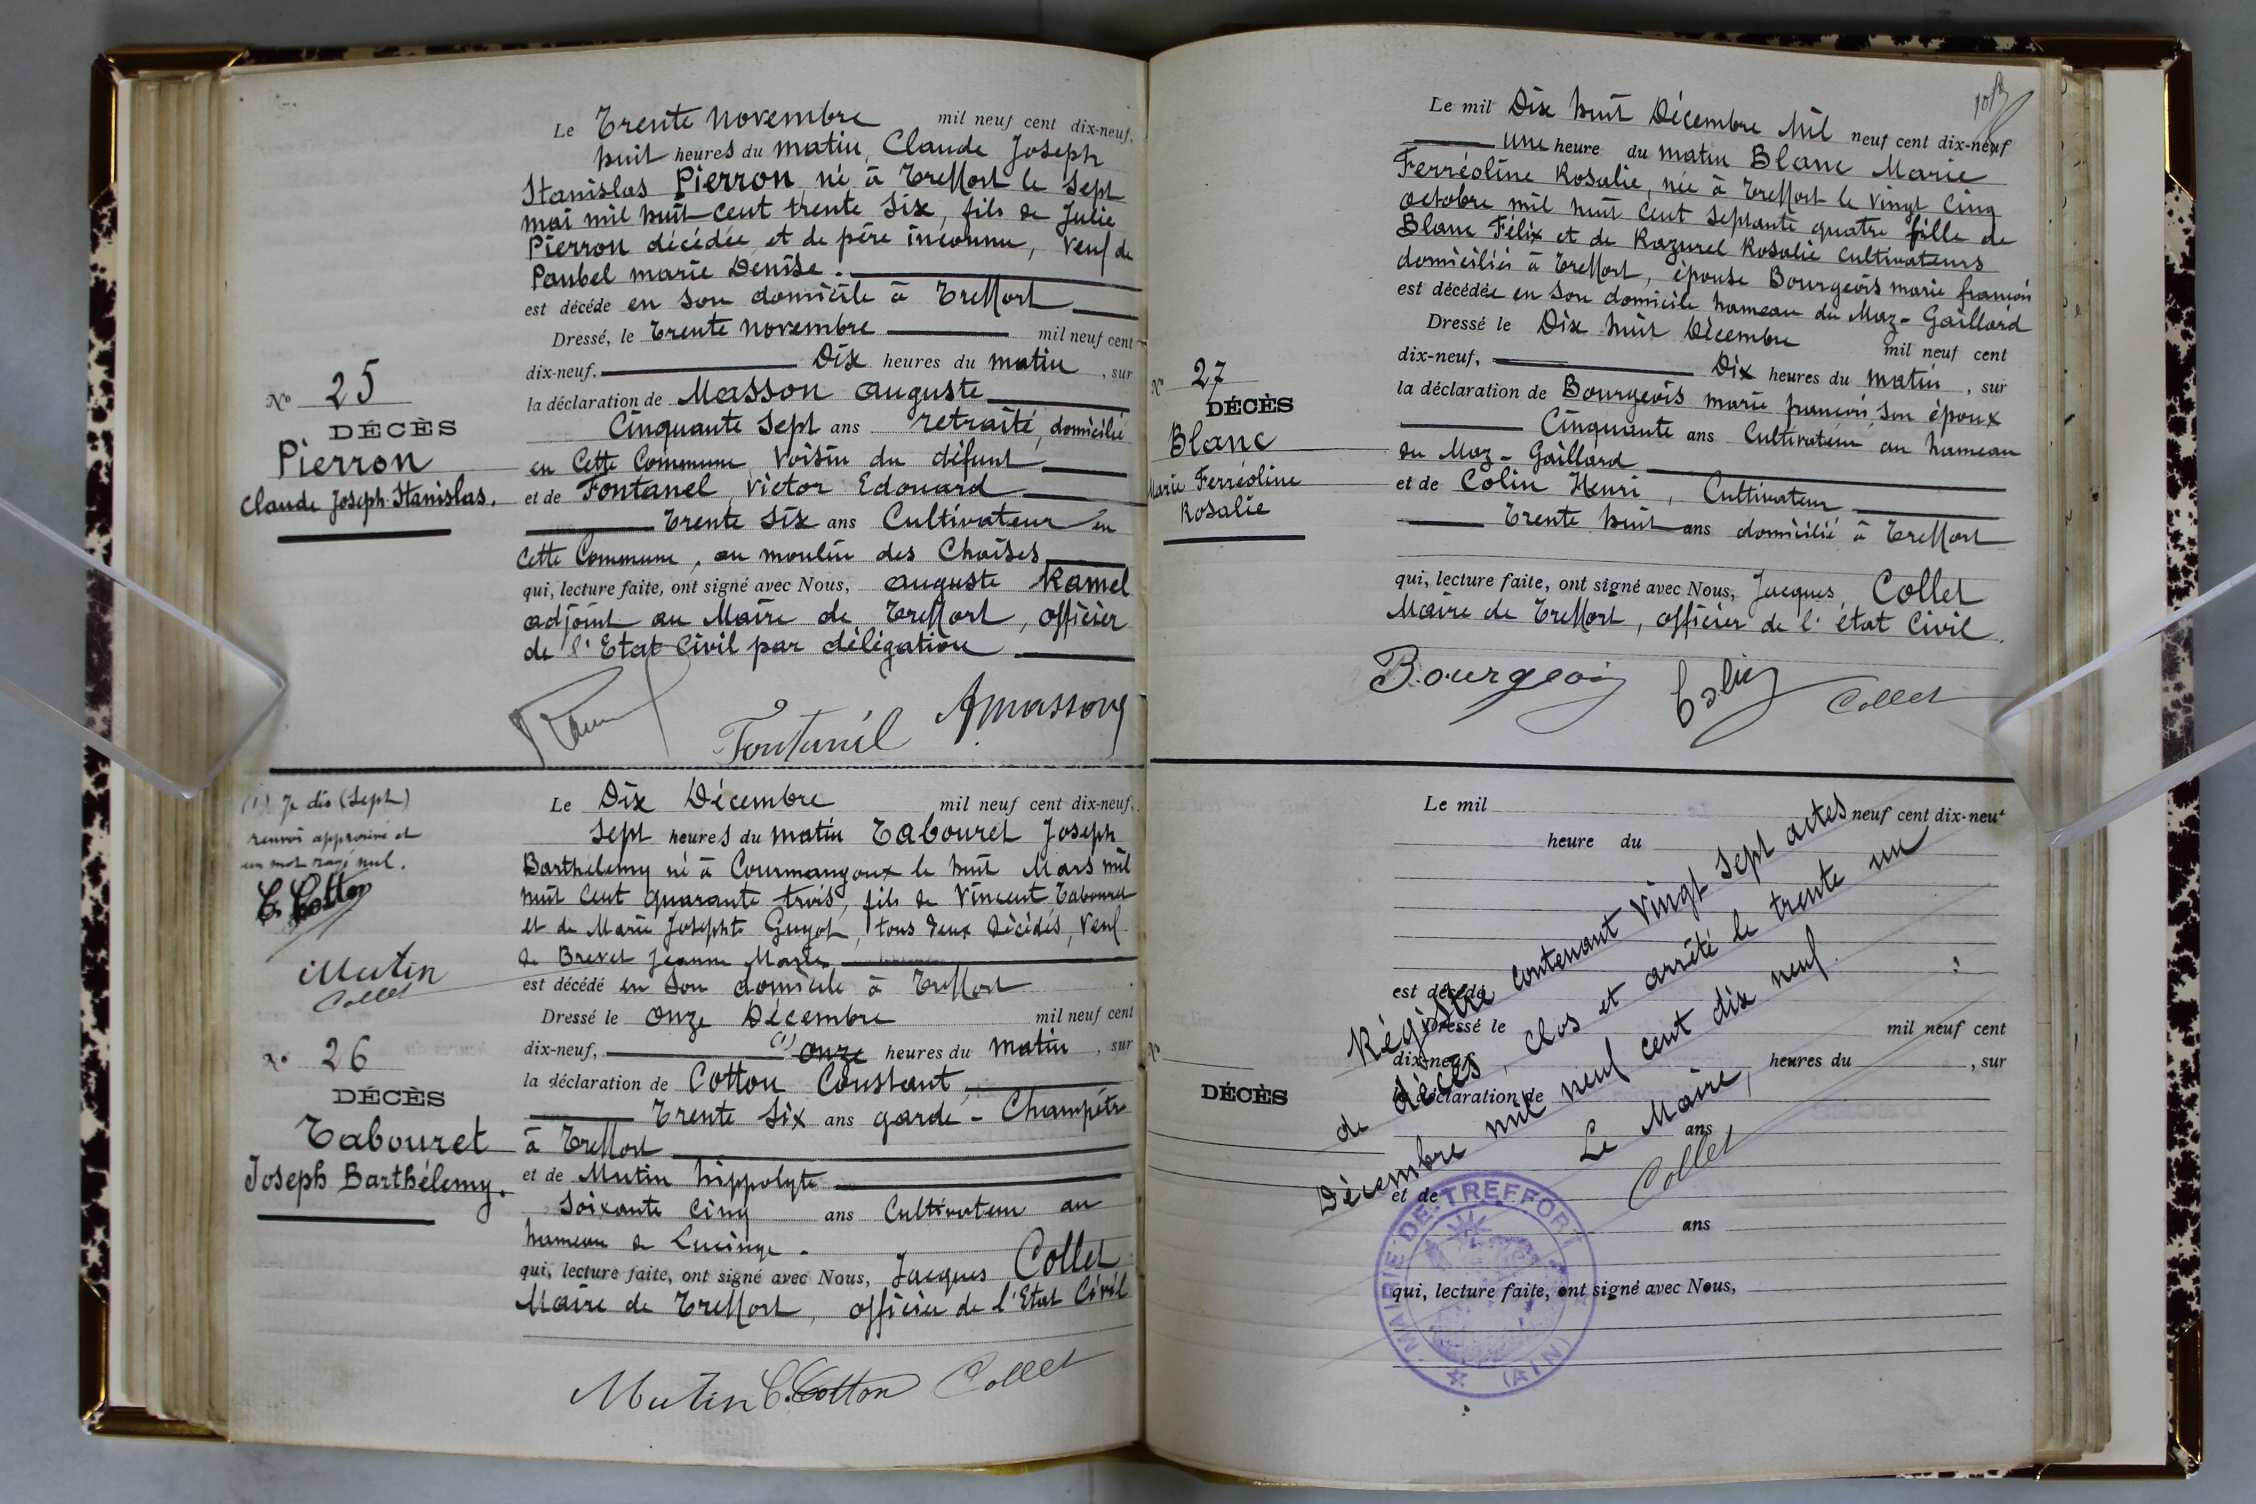 Le Trente novembre mil neuf cent dix-neuf,
huit heures du matin, Claude Joseph
Stanislas Pierron, né à Treffort le sept
mai mil huit cent trente six, fils de Julie
Pierron décédée et de père inconnu, veuf de
Paubel marie Denise.
est décédé en son domicile à Treffort
Dressé, le trente novembre mil neuf cent
dix-neuf, Dix heures du matin, sur
la déclaration de Masson auguste
Cinquante sept ans retraité, domicilié
en cette Commune, voisin du défunt
et de Fontanel, Victor Edouard
Trente six ans Cultivateur en
cette Commune, au moulin des Choises
qui, lecture faite, ont signé avec Nous, auguste Ramel
adjoint au Maire de Treffort, officier
de l'Etat Civil par délégation
Fontanel AMasson
No 25
DÉCÈS
Pierron
Claude Joseph Stanislas.
(1) Je dis (Sept)
renvoi approuvé et
un mot rayé nul.
C. Cotton
Mutin
Collet
No 26
DÉCÈS
Tabouret
Joseph Barthélemy.
Le Dix Décembre mil neuf cent dix-neuf,
sept heures du matin Tabouret Joseph
Barthélemy né à Courmangoux le huit Mars mil
huit cent quarante trois, fils de Vincent Tabouret
et de Marie Josephte Guyot, tous deux décédés, veuf
de Brevet Jeanne Marie
est décédé en son domicile à Treffort
Dressé le onze Décembre mil neuf cent
dix-neuf, (1) onze heures du matin, sur
la déclaration de Cotton Constant,
Trente six ans garde-Champêtre
à Treffort
et de Mutin hippolyte
soixante cinq ans Cultivateur au
hameau de Lucinge.
qui, lecture faite, ont signé avec Nous, Jacques Collet
Maire de Treffort, officier de l'Etat Civil
Mutin C.Cotton Collet
Le mil Dix huit Décembre Mil neuf cent dix-neuf
une heure du matin Blanc Marie
Ferréoline Rosalie, née à Treffort le vingt cinq
octobre mil huit cent septante quatre fille de
Blanc Félix et de Razurel Rosalie cultivateurs
domiciliés à Treffort, épouse Bourgeois marie françois
est décédée en son domicile hameau du Moz-Gaillard
Dressé le Dix huit Décembre mil neuf cent
dix-neuf, Dix heures du matin, sur
la déclaration de Bourgeois marie françois son époux
Cinquante ans Cultivateur au hameau
du Moz-Gaillard
et de Colin Henri, Cultivateur
Trente huit ans domicilié à Treffort
qui, lecture faite, ont signé avec Nous, Jacques Collet
Maire de Treffort, officier de l'état Civil.
Bourgeois Colin Collet
No 27
DÉCÈS
Blanc
Marie Ferréoline
Rosalie
Le mil neuf cent dix-neuf
heure du
est décédé
Dressé le mil neuf cent
dix-neuf, heures du , sur
la déclaration de
ans
et de
ans
qui, lecture faite, ont signé avec Nous,
No
DÉCÈS
Régistre contenant vingt sept actes
de décès, clos et arrêté le trente un
Décembre mil neuf cent dix neuf.
Le Maire,
Collet
MAIRIE DE TREFFORT
(AIN)